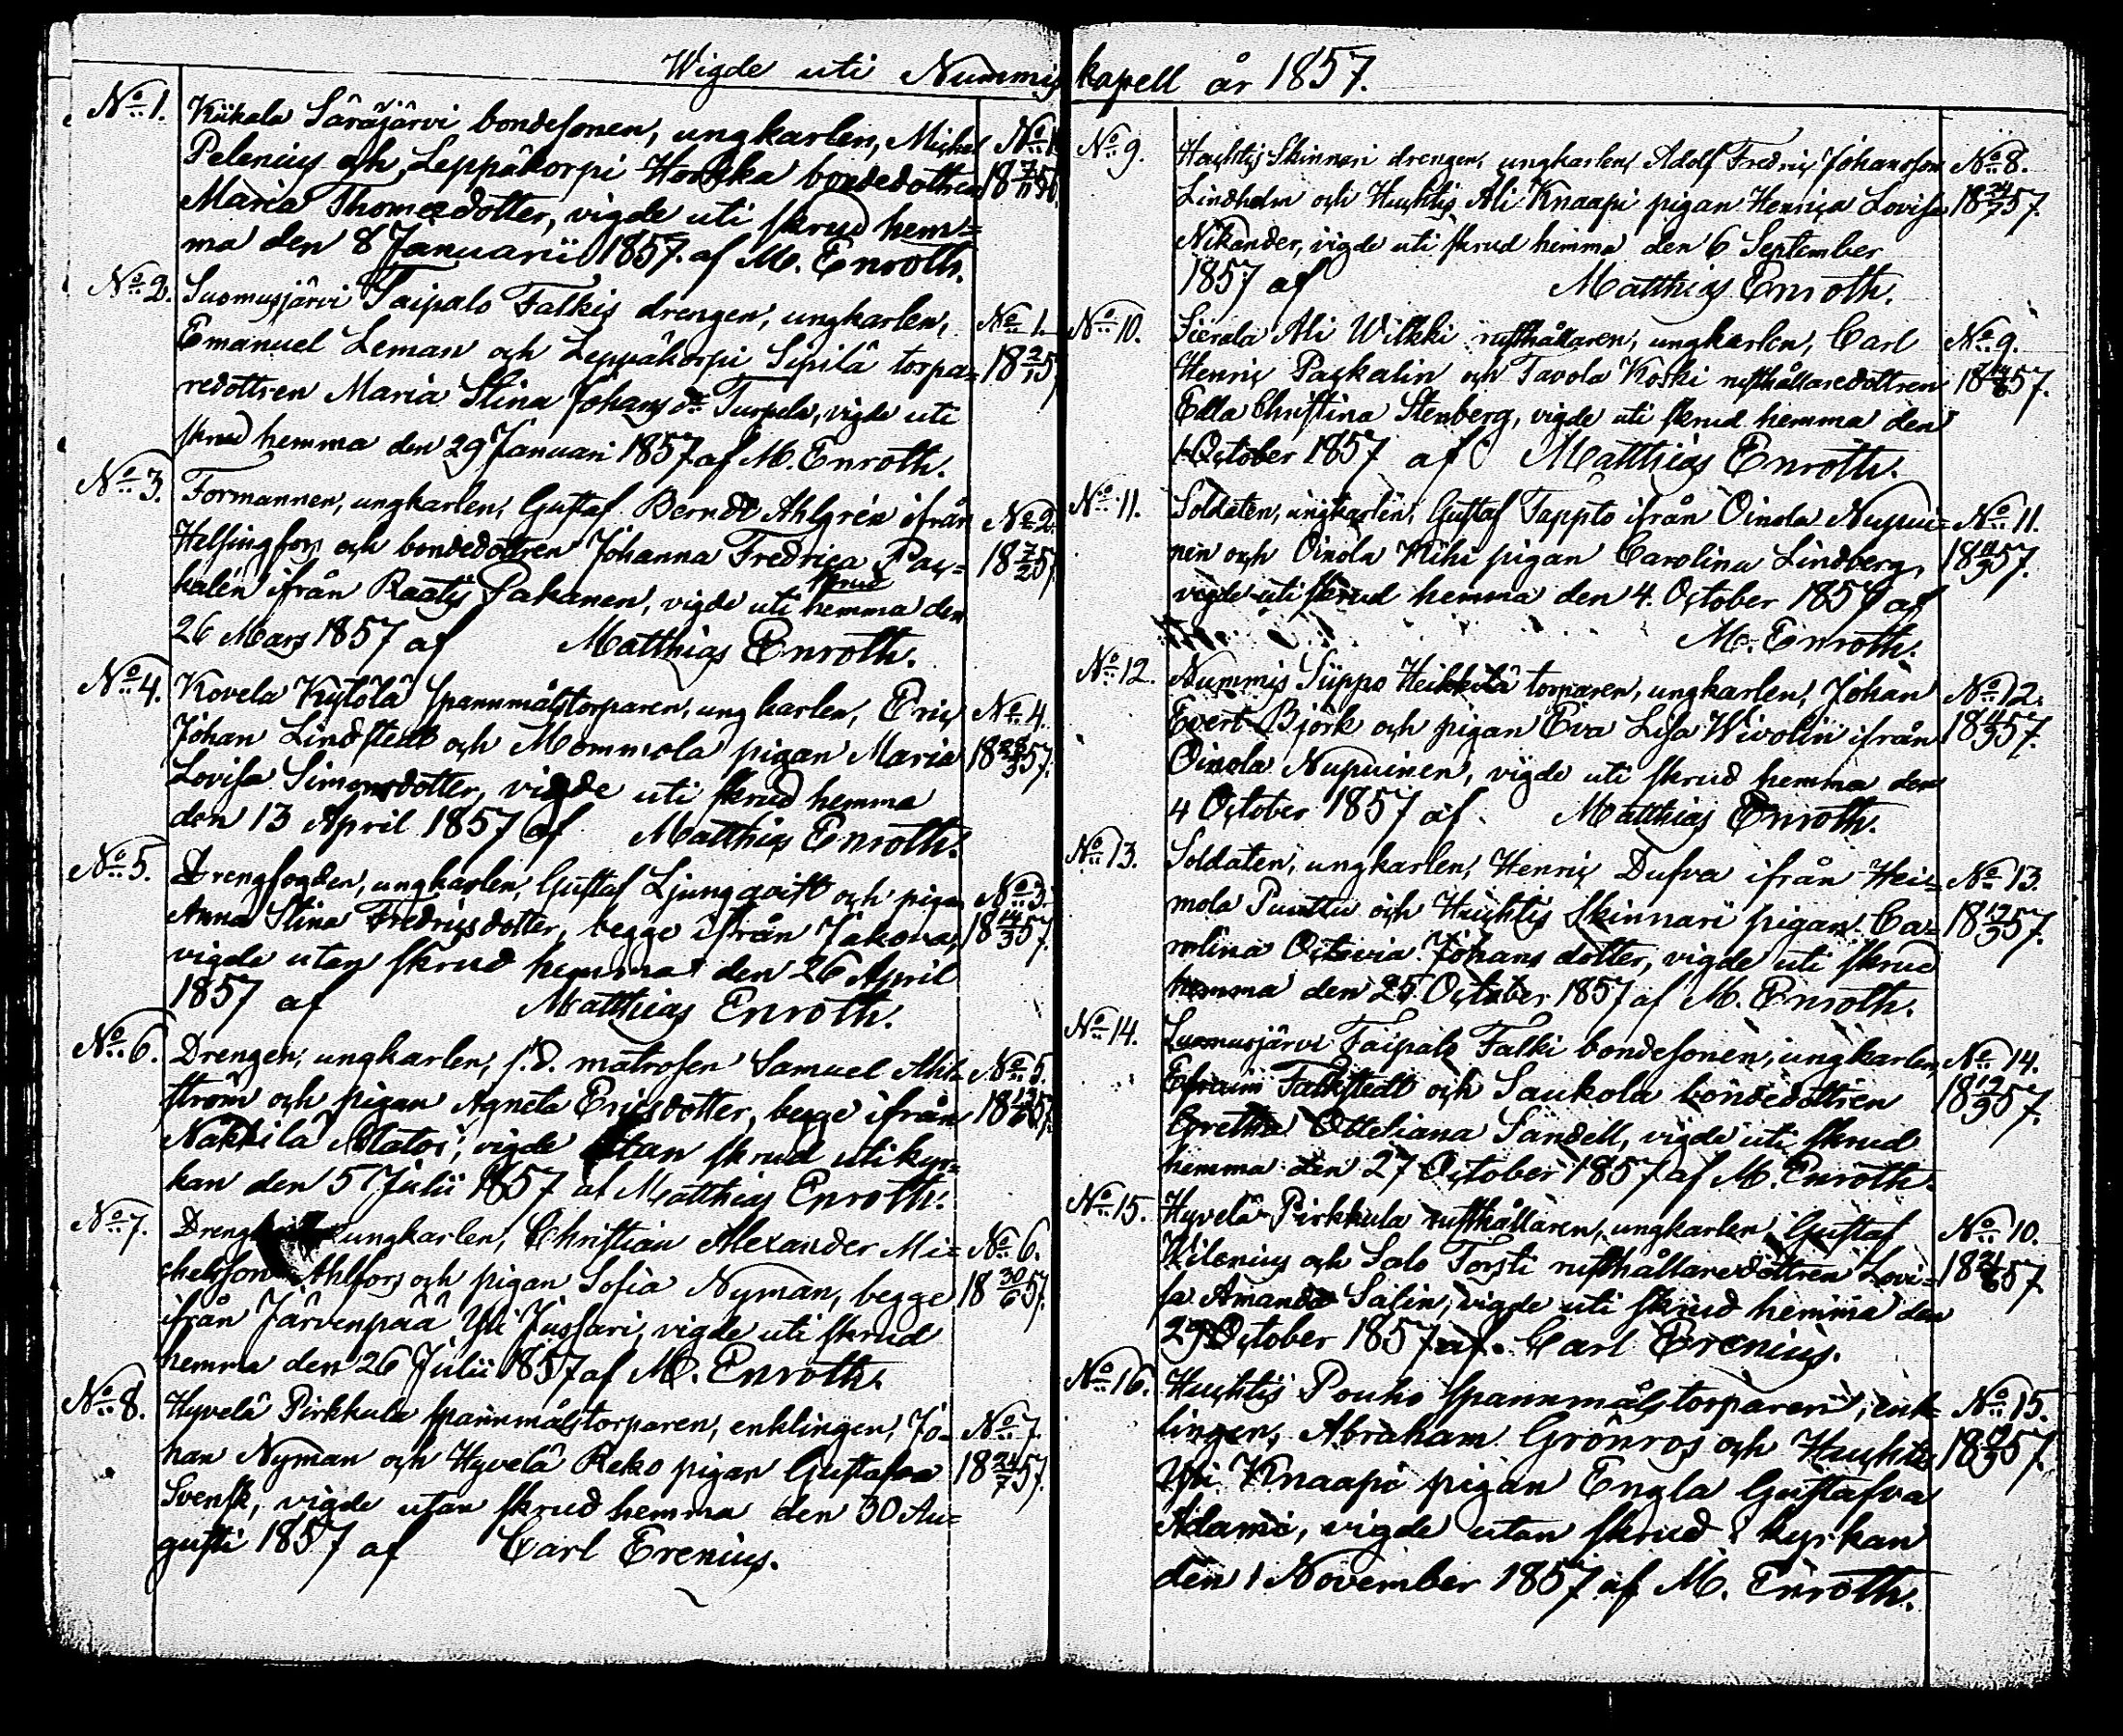 Wigde uti Nummis kapell år 1857.
No 1. Kiikala Säräjärvi bondesonen, ungkarlen, Michel No 1
Pelenius och Leppäkorpi Hockka bondedottren 18 7/11 56.
Maria Thomasdotter, vigde uti skrud hem=
ma den 8 Januarii 1857. af M. Enroth.
No 2. Suomusjärvi Taipalo Falkis drengen, ungkarlen, No 1.
Emanuel Leman och Leppäkorpi Sipilä torpa= 18 2/1 57
redottren Maria Stina Johans dr Turpela, vigde uti
skrud hemma den 29 Januari 1857 af M. Enroth.
No 3. Formannen, ungkarlen, Gustaf Berndt Ahlgrén ifrån No 2.
Helsingfors och bondedottren Johanna Fredrica Pas= 18 7/2 57.
kalin ifrån Raatis Pakanen, vigde uti skrud hemma den
26 Mars 1857 af Matthias Enroth.
No 4. Kovela Kytölä spannmålstorparen, ungkarlen, Eric No 4.
Johan Lindstedt och Mommola pigan Maria 18 22/3 57.
Lovisa Simonsdotter, vigde uti skrud hemma
den 13 April 1857 af Matthias Enroth.
No 5. Drengfogden, ungkarlen, Gustaf Ljungqvist och pigan No 3.
Anna Stina Fredricsdotter, begge ifrån Jakova, 18 14/3 57.
vigde utan skrud hemma den 26 April
1857 af Matthias Enroth.
No 6. Drengen, ungkarlen, f.d. matrosen Samuel Ahl- No 5.
ström och pigan Agneta Ericsdotter, begge ifrån 18 57.
Nakkila Matoi, vigde utan skrud uti kyr=
kan den 5 Julii 1857 af Matthias Enroth.
No 7. Dreng ungkarlen, Christian Alexander Mi= No 6.
chelsson Ahlfors och pigan Sofia Nyman, begge 18 30/6 57.
ifrån Järvenpää Yli Jussari, vigde uti skrud
hemma den 26 Julii 1857 af M. Enroth.
No 8. Hyvelä Pirkkula spannmålstorparen, enklingen, Jo- No 7.
han Nyman och Hyvelä Reko pigan Gustafva 18 24/7 57.
Svensk, vigde utan skrud hemma den 30 Au=
gusti 1857 af Carl Erenius.
No 9. Huchtis Skinnari drengen, ungkarlen, Adolf Fredric Johansson No 8.
Lindholm och Huchtis Ali Knaapi pigan Henrica Lovisa 18 24/7 57.
Nikander, vigde uti skrud hemma den 6 September
1857 af Matthias Enroth.
No 10. Sierala Ali Wilkki rusthållaren, ungkarlen, Carl No 9.
Henric Paskalin och Tavola Koski rusthållaredottren 18 14/8 57.
Edla Christina Stenberg, vigde uti skrud hemma den
1 October 1857 af Matthias Enroth.
No 11. Soldaten, ungkarlen, Gustaf Tappto ifrån Oinola Nupui= No 11.
nen och Oinola Kihi pigan Carolina Lindberg, 18 57.
vigde uti skrud hemma den 4. October 1857 af
M. Enroth.
No 12. Nummis Siippo Heikkilä torparen, ungkarlen, Johan No 12.
Evert Björk och pigan Eva Lisa Wivolin ifrån 18 57.
Oinola Nupuinen, vigde uti skrud hemma den
4 October 1857 af Matthias Enroth.
No 13. Soldaten, ungkarlen, Henric Dufva ifrån Hei= No 13.
mola Punttu och Huchtis Skinnari pigan Ca= 18 12/9 57.
rolina Octavia Johans dotter, vigde uti skrud
hemma den 25 October 1857 af M. Enroth.
No 14. Suomusjärvi Taipalo Falki bondesonen, ungkarlen, No 14.
Efraim Falkstedt och Saukola bondedottren 18 19/9 57.
Gretha Otteliana Sandell, vigde uti skrud
hemma den 27 October 1857 af M. Enroth.
No 15. Hyvelä Pirkkula rusthållaren, ungkarlen, Gustaf No 10.
Kilenius och Salo Torsti rusthållaredottren Lovi= 18 57
sa Amanda Salin, vigde uti skrud hemma den
29 October 1857 af Carl Erenius.
No 16. Huchtis Pouho spannmålstorparen, enk= No 15.
lingen, Abraham Grönros och Huchtis 18 57.
Yli Knaapi pigan Engla Gustafva
Adami, vigde utan skrud i kyrkan
den 1 November 1857 af M. Enroth.